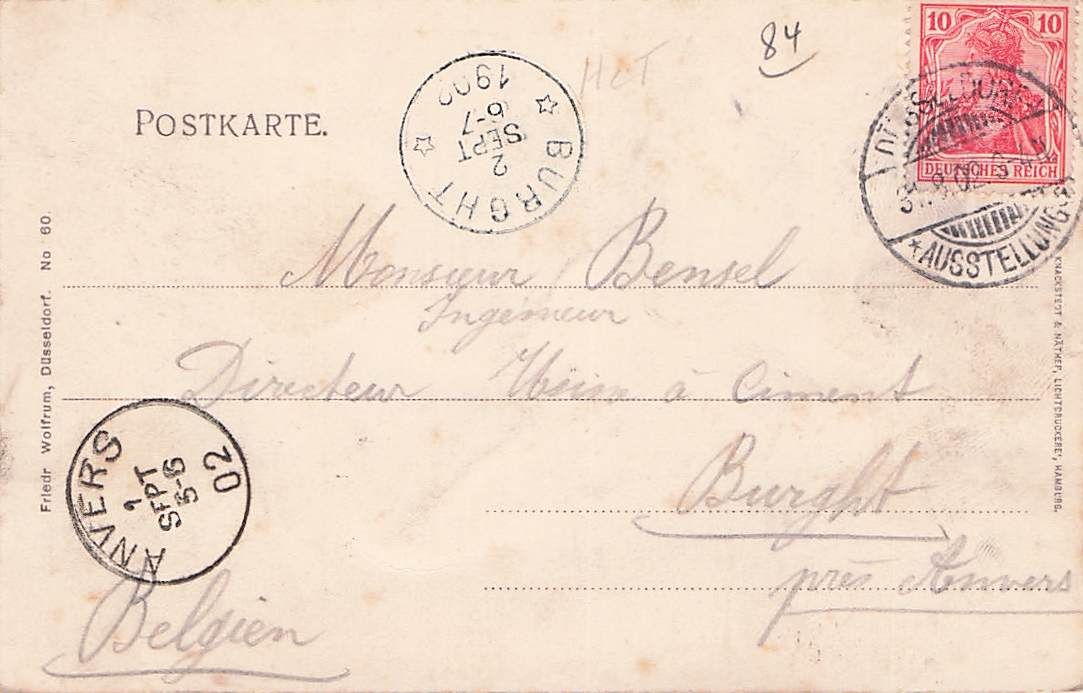 84
HCT
10 10
DEUTSCHES REICH
DÜSSELDORF
31.8.02
*AUSSTELLUNG*
POSTKARTE.
BURGHT
2
SEPT
6-7
1902
Monsieur Bensel
Ingénieur
Directeur Usine à Ciment
Burght
près Anvers
Belgien
ANVERS
1
SEPT
5-6
02
Friedr Wolfrum, Düsseldorf. No 60.
KNACKSTEDT & NÄTHER, LICHTDRUCKEREI, HAMBURG.